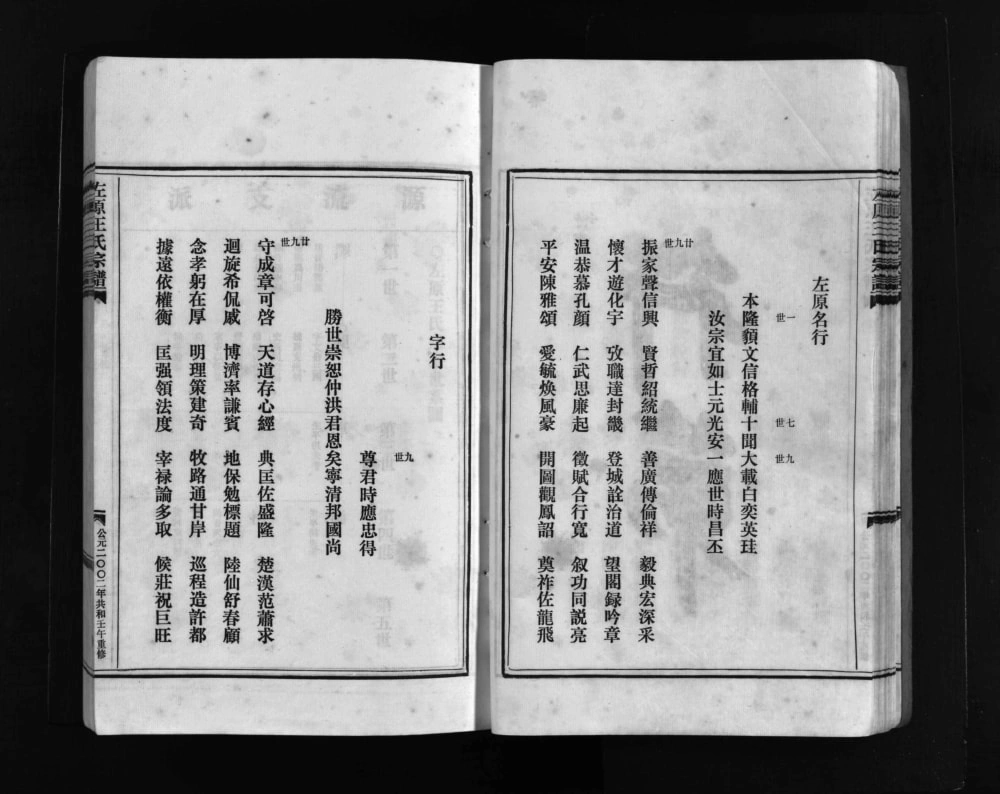 左原名行
一世
七世
九世
本隆額文信格輔十聞大載白奕英珪
汝宗宜如士元光安一應世時昌丕
廿九世
振家聲信興 賢哲紹統繼 善廣傳倫祥 毅典宏深采
懷才遊化宇 攷職達封畿 登城詮治道 望閣録吟章
温恭慕孔顔 仁武思廉起 徵賦合行寬 叙功同説亮
平安陳雅頌 愛毓焕風豪 開圖觀鳳詔 奠祚佐龍飛
字行
九世
尊君時應忠得
勝世崇恕仲洪君恩矣寧清邦國尚
廿九世
守成章可啓 天道存心經 典匡佐盛隆 楚漢范蕭求
迴旋希侃戚 博濟率謙賓 地保勉標題 陸仙舒春顧
念孝躬在厚 明理策建奇 牧路通甘岸 巡程造許都
據遠依權衡 匡强領法度 宰禄論多取 候莊祝巨旺
左原汪氏宗譜
公元二〇〇二年共和壬午重修